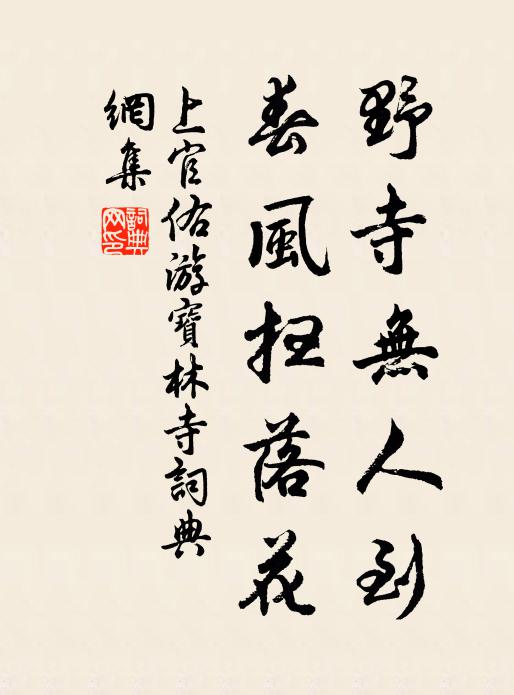 野寺無人到
春風扫落花
上官佑游寶林寺詞典
網集
詞典網印